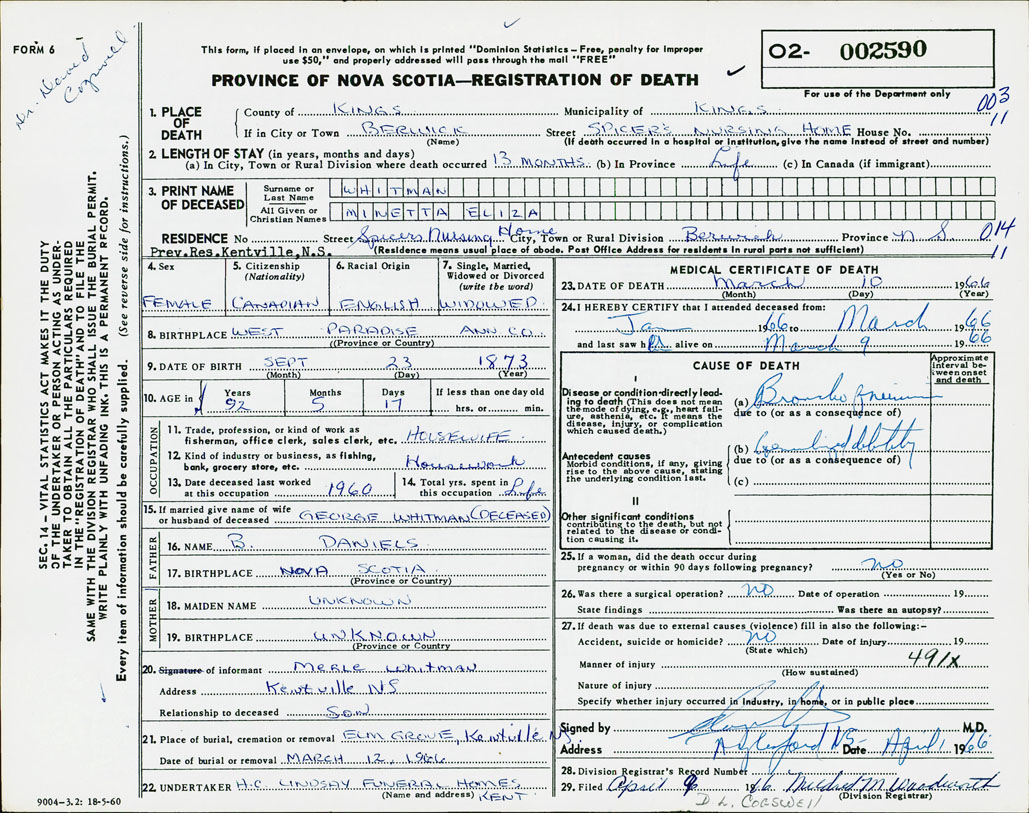 FORM 6
Dr. David Cogswell
This form, if placed in an envelope, on which is printed "Dominion Statistics – Free, penalty for improper
use $50," and properly addressed will pass through the mail "FREE"
PROVINCE OF NOVA SCOTIA—REGISTRATION OF DEATH
O2- 002590
For use of the Department only
003
11
1. PLACE OF DEATH
County of KINGS Municipality of KINGS
If in City or Town BERWICK Street SPICER'S NURSING HOME House No.
(Name) (If death occurred in a hospital or institution, give the name instead of street and number)
2. LENGTH OF STAY (in years, months and days)
(a) In City, Town or Rural Division where death occurred 13 MONTHS (b) In Province Life (c) In Canada (if immigrant)
3. PRINT NAME OF DECEASED
Surname or Last Name WHITMAN
All Given or Christian Names MINETTA ELIZA
RESIDENCE No Street Spicers Nursing Home City, Town or Rural Division Berwick Province N S 014
11
Prev.Res.Kentville,N.S. (Residence means usual place of abode. Post Office Address for residents in rural parts not sufficient)
4. Sex FEMALE
5. Citizenship (Nationality) CANADIAN
6. Racial Origin ENGLISH
7. Single, Married, Widowed or Divorced (write the word) WIDOWED
8. BIRTHPLACE WEST PARADISE ANN CO.
(Province or Country)
9. DATE OF BIRTH SEPT 23 1873
(Month) (Day) (Year)
10. AGE in Years Months Days If less than one day old
92 5 17 hrs. or min.
OCCUPATION
11. Trade, profession, or kind of work as
fisherman, office clerk, sales clerk, etc. HOUSEWIFE
12. Kind of industry or business, as fishing,
bank, grocery store, etc. Housework
13. Date deceased last worked at this occupation 1960
14. Total yrs. spent in this occupation Life
15. If married give name of wife
or husband of deceased GEORGE WHITMAN (DECEASED)
FATHER
16. NAME B. DANIELS
17. BIRTHPLACE NOVA SCOTIA
(Province or Country)
MOTHER
18. MAIDEN NAME UNKNOWN
19. BIRTHPLACE UNKNOWN
(Province or Country)
20. Signature of informant MERLE WHITMAN
Address Kentville NS
Relationship to deceased SON
21. Place of burial, cremation or removal ELM GROVE, Kentville NS
Date of burial or removal MARCH 12, 1966
22. UNDERTAKER H.C. LINDSAY FUNERAL HOMES
(Name and address) KENT.
9004–3.2: 18-5-60
MEDICAL CERTIFICATE OF DEATH
23. DATE OF DEATH March 10 1966
(Month) (Day) (Year)
24. I HEREBY CERTIFY that I attended deceased from:
Jan 1966 to March 1966
and last saw her alive on March 9 1966
CAUSE OF DEATH
Approximate interval between onset and death
I
Disease or condition directly leading to death (This does not mean the mode of dying, e.g., heart failure, asthenia, etc. It means the disease, injury, or complication which caused death.)
(a)
due to (or as a consequence of)
Antecedent causes
Morbid conditions, if any, giving rise to the above cause, stating the underlying condition last.
(b) debility
due to (or as a consequence of)
(c)
II
Other significant conditions
contributing to the death, but not related to the disease or condition causing it.
25. If a woman, did the death occur during
pregnancy or within 90 days following pregnancy? no
(Yes or No)
26. Was there a surgical operation? NO Date of operation 19
State findings Was there an autopsy?
27. If death was due to external causes (violence) fill in also the following:–
Accident, suicide or homicide? no Date of injury 19
(State which)
Manner of injury 491x
(How sustained)
Nature of injury
Specify whether injury occurred in industry, in home, or in public place
Signed by M.D.
Address NS Date April 1 1966
28. Division Registrar's Record Number
29. Filed April 1966 Mildred M Woodworth
(Division Registrar)
D. L. COGSWELL
SEC. 14 – VITAL STATISTICS ACT MAKES IT THE DUTY
OF THE UNDERTAKER OR PERSON ACTING AS UNDER-
TAKER TO OBTAIN ALL THE PARTICULARS REQUIRED
IN THE "REGISTRATION OF DEATH" AND TO FILE THE
SAME WITH THE DIVISION REGISTRAR WHO SHALL ISSUE THE BURIAL PERMIT.
WRITE PLAINLY WITH UNFADING INK. THIS IS A PERMANENT RECORD.
Every item of information should be carefully supplied. (See reverse side for instructions.)